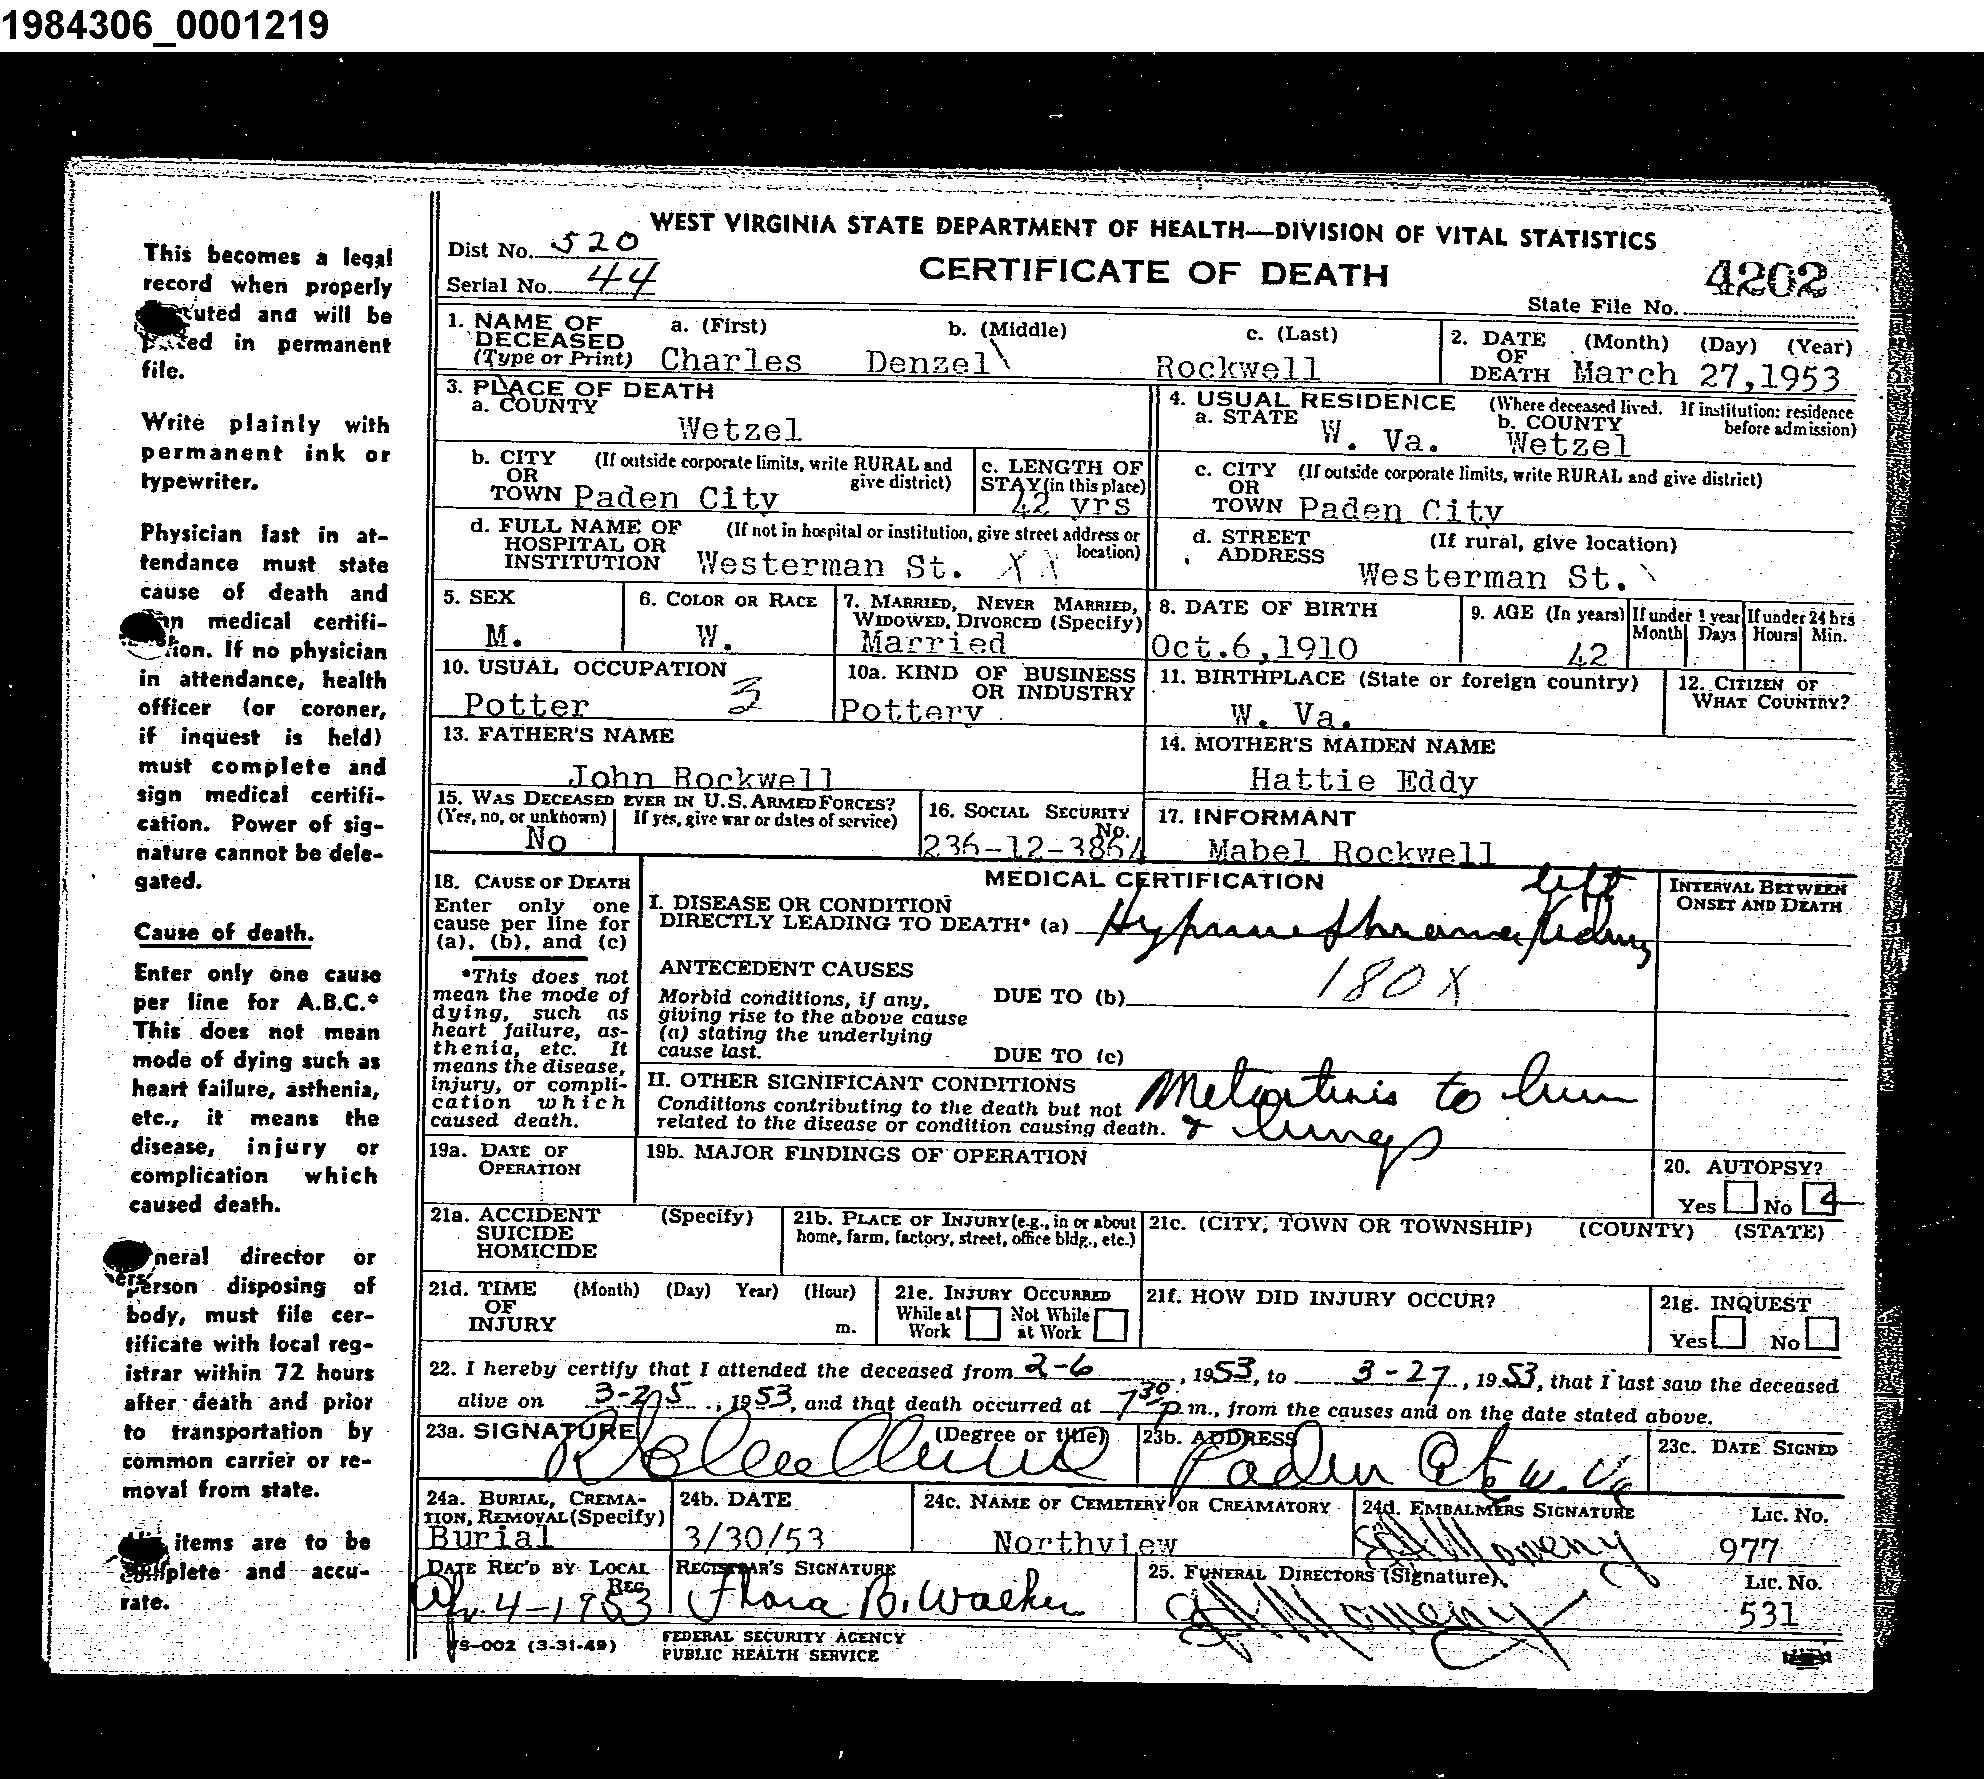 1984306_0001219
This becomes a legal
record when properly
uted and will be
in permanent
file.
Write plainly with
permanent ink or
typewriter.
Physician last in at-
tendance must state
cause of death and
medical certifi-
tion. If no physician
in attendance, health
officer (or coroner,
if inquest is held)
must complete and
sign medical certifi-
cation. Power of sig-
nature cannot be dele-
gated.
Cause of death.
Enter only one cause
per line for A.B.C.*
This does not mean
mode of dying such as
heart failure, asthenia,
etc., it means the
disease, injury or
complication which
caused death.
neral director or
person disposing of
body, must file cer-
tificate with local reg-
istrar within 72 hours
after death and prior
to transportation by
common carrier or re-
moval from state.
items are to be
plete and accu-
rate.
WEST VIRGINIA STATE DEPARTMENT OF HEALTH—DIVISION OF VITAL STATISTICS
Dist No. 520
CERTIFICATE OF DEATH
Serial No. 44
4202
State File No.
1. NAME OF DECEASED (Type or Print) a. (First) b. (Middle) c. (Last)
Charles Denzel Rockwell
2. DATE OF DEATH (Month) (Day) (Year)
March 27,1953
3. PLACE OF DEATH
a. COUNTY
Wetzel
4. USUAL RESIDENCE (Where deceased lived. If institution: residence before admission)
a. STATE W. Va. b. COUNTY Wetzel
b. CITY OR TOWN (If outside corporate limits, write RURAL and give district)
Paden City
c. LENGTH OF STAY (in this place)
42 yrs
c. CITY OR TOWN (If outside corporate limits, write RURAL and give district)
Paden City
d. FULL NAME OF HOSPITAL OR INSTITUTION (If not in hospital or institution, give street address or location)
Westerman St. X X
d. STREET ADDRESS (If rural, give location)
Westerman St.
5. SEX
M.
6. COLOR OR RACE
W.
7. MARRIED, NEVER MARRIED, WIDOWED, DIVORCED (Specify)
Married
8. DATE OF BIRTH
Oct.6,1910
9. AGE (In years)
42
If under 1 year
Month Days
If under 24 hrs
Hours Min.
10. USUAL OCCUPATION
Potter 3
10a. KIND OF BUSINESS OR INDUSTRY
Pottery
11. BIRTHPLACE (State or foreign country)
W. Va.
12. CITIZEN OF WHAT COUNTRY?
13. FATHER'S NAME
John Rockwell
14. MOTHER'S MAIDEN NAME
Hattie Eddy
15. WAS DECEASED EVER IN U.S. ARMED FORCES?
(Yes, no, or unknown) If yes, give war or dates of service)
No
16. SOCIAL SECURITY No.
236-12-3864
17. INFORMANT
Mabel Rockwell
18. CAUSE OF DEATH
Enter only one
cause per line for
(a), (b), and (c)
*This does not
mean the mode of
dying, such as
heart failure, as-
thenia, etc. It
means the disease,
injury, or compli-
cation which
caused death.
MEDICAL CERTIFICATION
I. DISEASE OR CONDITION
DIRECTLY LEADING TO DEATH* (a)
left
INTERVAL BETWEEN
ONSET AND DEATH
ANTECEDENT CAUSES
Morbid conditions, if any,
giving rise to the above cause
(a) stating the underlying
cause last.
DUE TO (b) 180X
DUE TO (c)
II. OTHER SIGNIFICANT CONDITIONS
Conditions contributing to the death but not
related to the disease or condition causing death.
to
& lungs
19a. DATE OF OPERATION
19b. MAJOR FINDINGS OF OPERATION
20. AUTOPSY?
Yes No
21a. ACCIDENT SUICIDE HOMICIDE (Specify)
21b. PLACE OF INJURY (e.g., in or about home, farm, factory, street, office bldg., etc.)
21c. (CITY, TOWN OR TOWNSHIP) (COUNTY) (STATE)
21d. TIME OF INJURY (Month) (Day) Year) (Hour) m.
21e. INJURY OCCURRED
While at Work Not While at Work
21f. HOW DID INJURY OCCUR?
21g. INQUEST
Yes No
22. I hereby certify that I attended the deceased from 2-6, 1953, to 3-27, 1953, that I last saw the deceased
alive on 3-25, 1953, and that death occurred at 7 30 p m., from the causes and on the date stated above.
23a. SIGNATURE (Degree or title)
23b. ADDRESS
Paden City W. Va
23c. DATE SIGNED
24a. BURIAL, CREMA-TION, REMOVAL (Specify)
Burial
24b. DATE
3/30/53
24c. NAME OF CEMETERY OR CREAMATORY
Northview
24d. EMBALMERS SIGNATURE
Lic. No.
977
DATE REC'D BY LOCAL REG.
Apr. 4-1953
REGISTRAR'S SIGNATURE
Flora B. Walker
25. FUNERAL DIRECTORS (Signature)
Lic. No.
531
VS-002 (3-31-49)
FEDERAL SECURITY AGENCY
PUBLIC HEALTH SERVICE